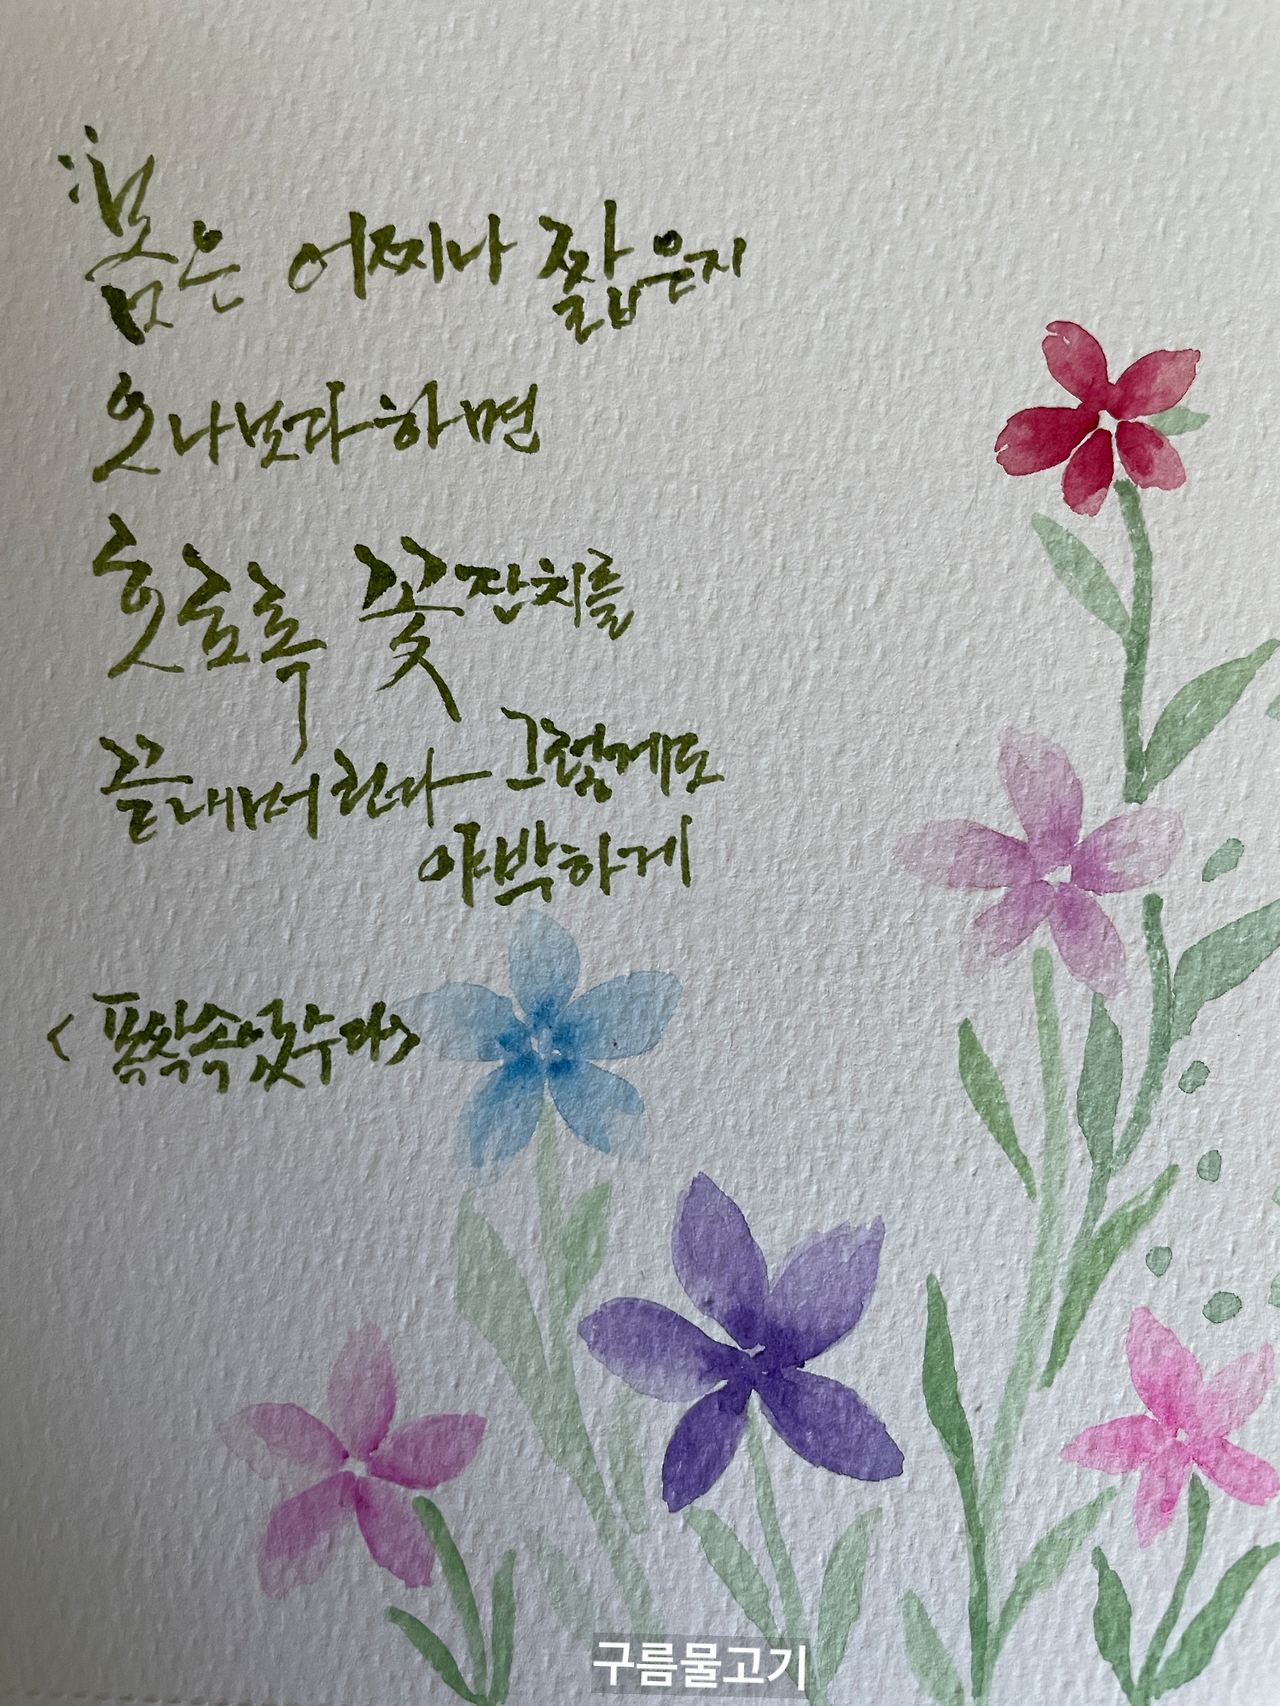 봄은 어찌나 짧은지
오나보다하면
호로록 꽃잔치를
끝내버린다 그렇게도
야박하게
<폭싹속았수다>
구름물고기